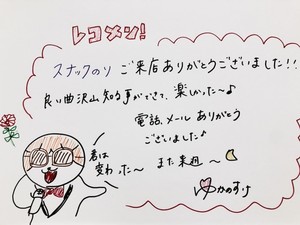 レコメン!
スナックのり ご来店ありがとうございました!!
良い曲沢山知る事ができて、楽しかった〜♪
電話、メール ありがとう
ございました♪
また来週〜
君は
変わった〜
ゆかのすけ